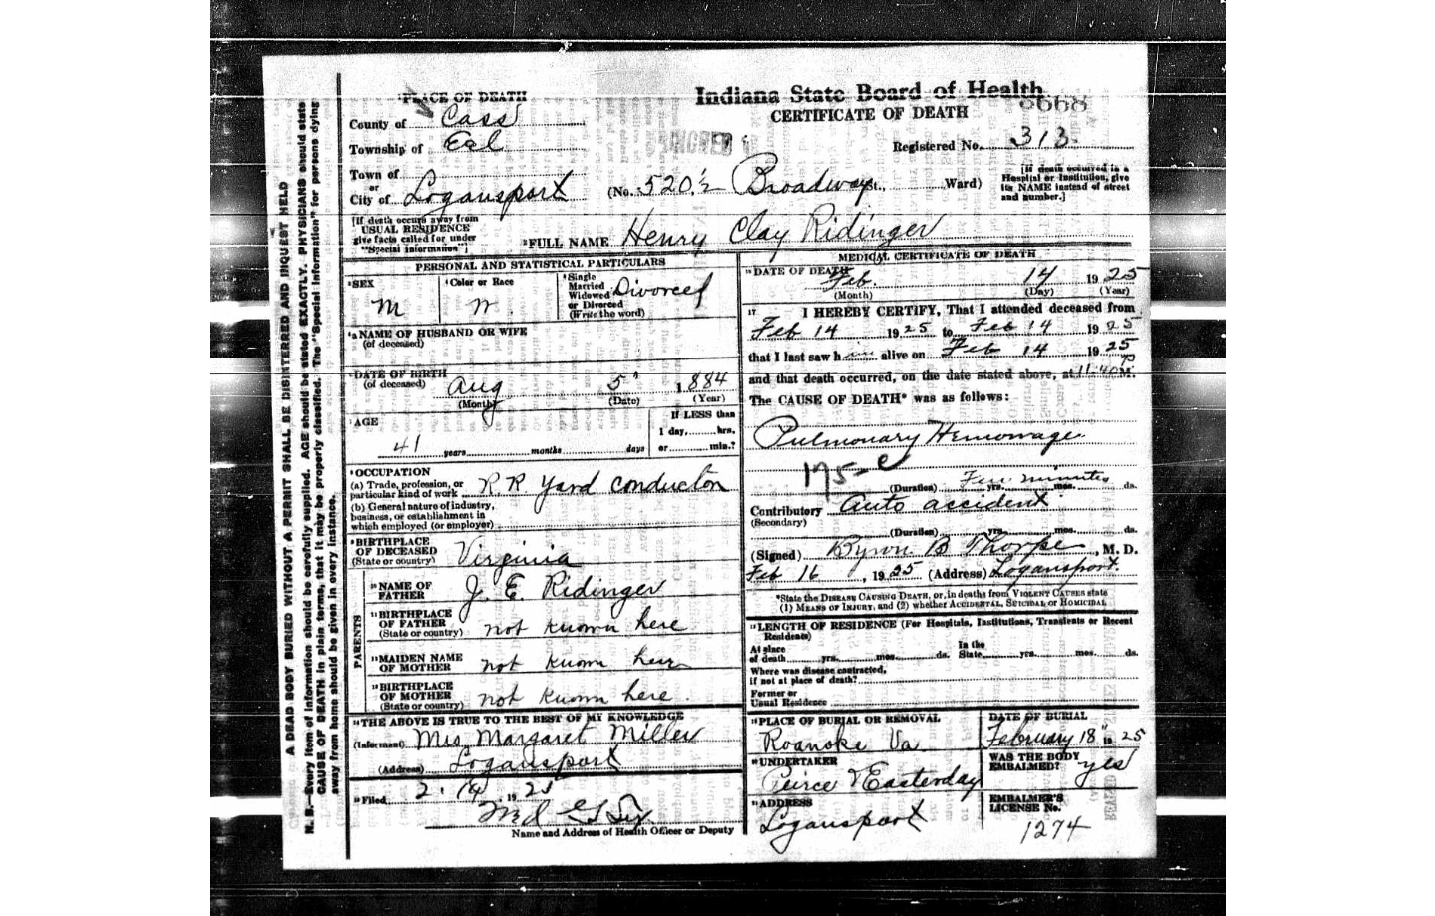 PLACE OF DEATH
County of Cass
Township of Eel
Town of
or
City of Logansport
[If death occurs away from
USUAL RESIDENCE
give facts called for under
"Special Information"]
Indiana State Board of Health
8668
CERTIFICATE OF DEATH
Registered No. 313
(No. 520½ Broadway St., Ward)
[If death occurred in a
Hospital or Institution, give
its NAME instead of street
and number.]
FULL NAME Henry Clay Ridinger
PERSONAL AND STATISTICAL PARTICULARS
SEX M
Color or Race W.
Single
Married
Widowed
or Divorced
(Write the word)
Divorced
NAME OF HUSBAND OR WIFE
(of deceased)
DATE OF BIRTH
(of deceased) Aug 5 1884
(Month) (Date) (Year)
AGE
41 years months days
If LESS than
1 day, hrs.
or min.?
OCCUPATION
(a) Trade, profession, or
particular kind of work R.R Yard Conductor
(b) General nature of industry,
business, or establishment in
which employed (or employer)
BIRTHPLACE
OF DECEASED
(State or country) Virginia
PARENTS
NAME OF
FATHER J. E. Ridinger
BIRTHPLACE
OF FATHER
(State or country) not known here
MAIDEN NAME
OF MOTHER not known here
BIRTHPLACE
OF MOTHER
(State or country) not known here
THE ABOVE IS TRUE TO THE BEST OF MY KNOWLEDGE
(Informant) Mrs Margaret Miller
(Address) Logansport
Filed 2. 19 25
Name and Address of Health Officer or Deputy
MEDICAL CERTIFICATE OF DEATH
DATE OF DEATH
Feb. 14 1925
(Month) (Day) (Year)
17 I HEREBY CERTIFY, That I attended deceased from
Feb 14 1925 to Feb 14 1925
that I last saw him alive on Feb 14 1925
and that death occurred, on the date stated above, at 11:40 P M.
The CAUSE OF DEATH* was as follows:
Pulmonary Hemorrage
175-c
(Duration) Few minutes yrs. mos. ds.
Contributory Auto accident
(Secondary)
(Duration) yrs. mos. ds.
(Signed) Byron B Thorpe, M. D.
Feb 16, 1925 (Address) Logansport.
*State the DISEASE CAUSING DEATH, or, in deaths from VIOLENT CAUSES state
(1) MEANS OF INJURY, and (2) whether ACCIDENTAL, SUICIDAL or HOMICIDAL
LENGTH OF RESIDENCE (For Hospitals, Institutions, Transients or Recent
Residents)
At place
of death yrs. mos. ds.
In the
State yrs. mos. ds.
Where was disease contracted,
if not at place of death?
Former or
Usual Residence
PLACE OF BURIAL OR REMOVAL
Roanoke Va
DATE OF BURIAL
February 18 1925
UNDERTAKER
Peirce & Easterday
WAS THE BODY
EMBALMED? yes
ADDRESS
Logansport
EMBALMER'S
LICENSE No.
1274
A DEAD BODY BURIED WITHOUT A PERMIT SHALL BE DISINTERRED AND INQUEST HELD
N. B.—Every item of information should be carefully supplied. AGE should be stated EXACTLY. PHYSICIANS should state
CAUSE OF DEATH in plain terms, that it may be properly classified. The "Special Information" for persons dying
away from home should be given in every instance.